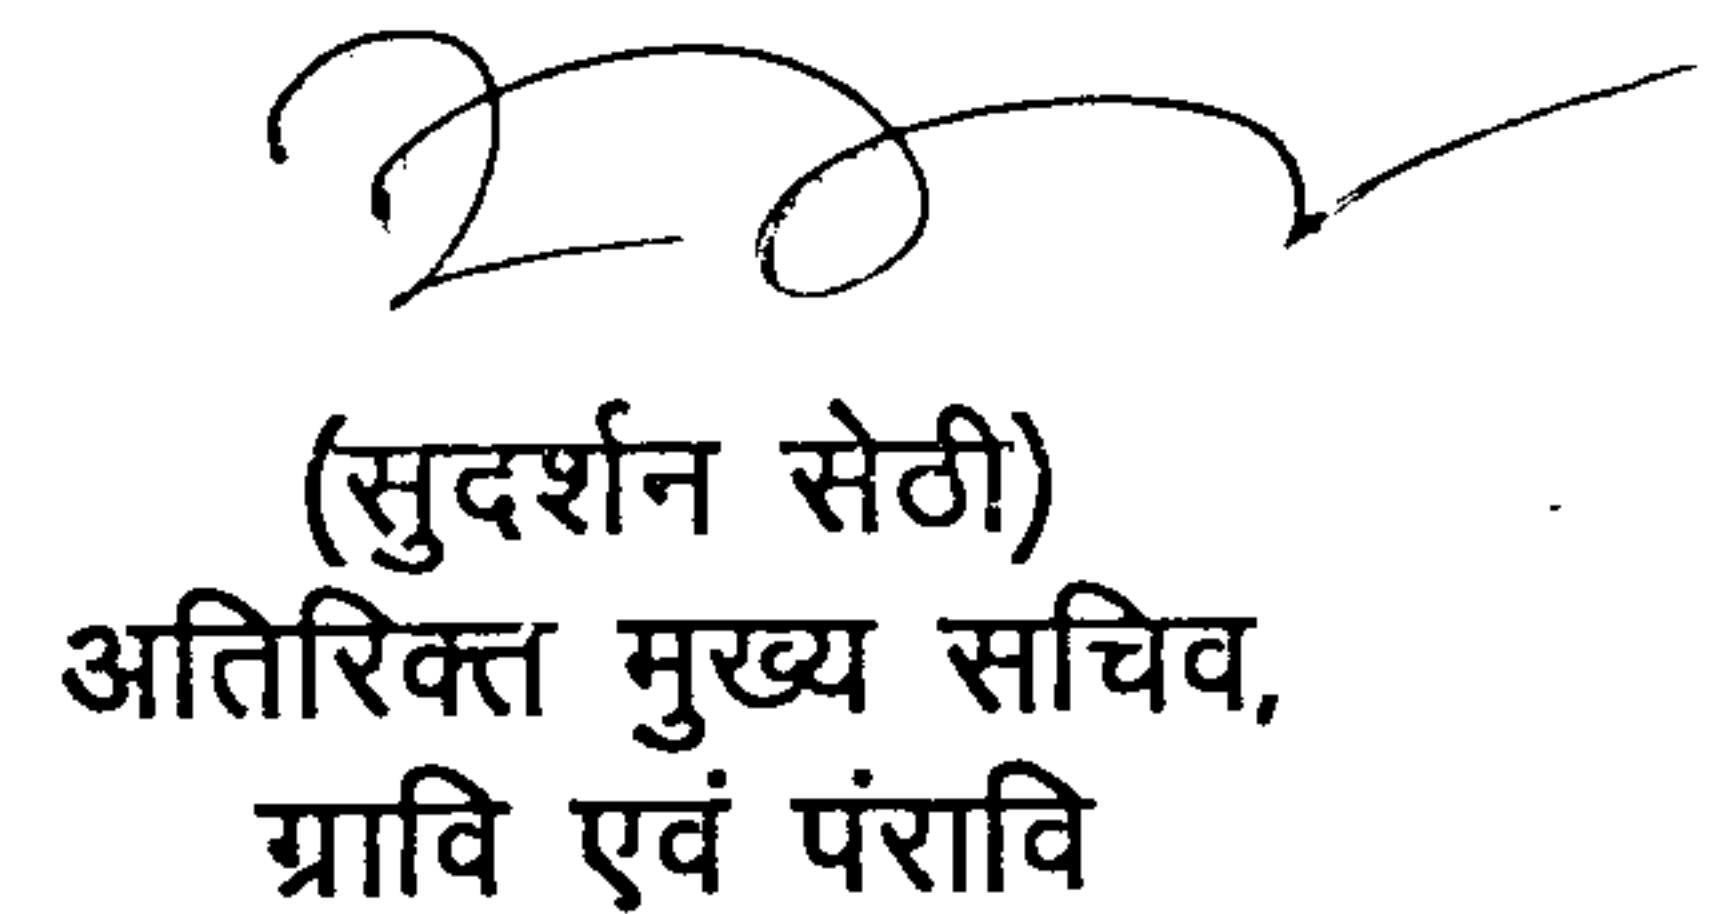 (सुदर्शन सेठी)
अतिरिक्त मुख्य सचिव,
ग्रावि एवं पंरावि